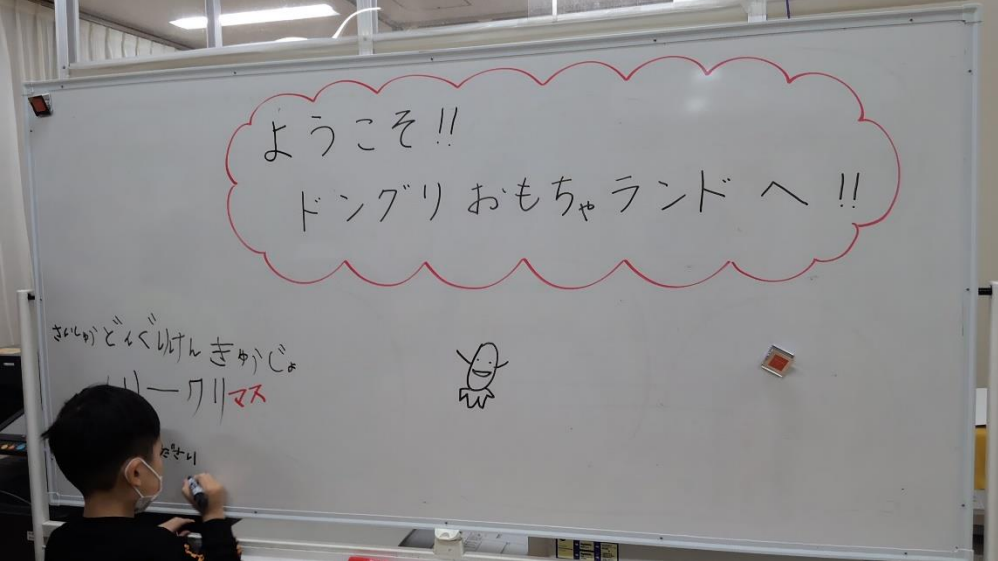 ようこそ!!
ドングリおもちゃランドへ!!
さいしゅうどんぐりけんきゅうじょ
リークリマス
ださい